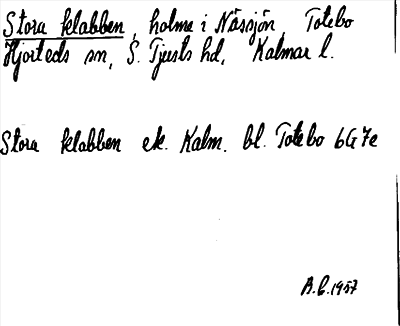 Stora klabben, holme i Nässjön, Totebo
Hjorteds sn, S. Tjusts hd, Kalmar l.
Stora klabben ek. Kalm. bl. Totebo 6G 7e
B.C. 1957